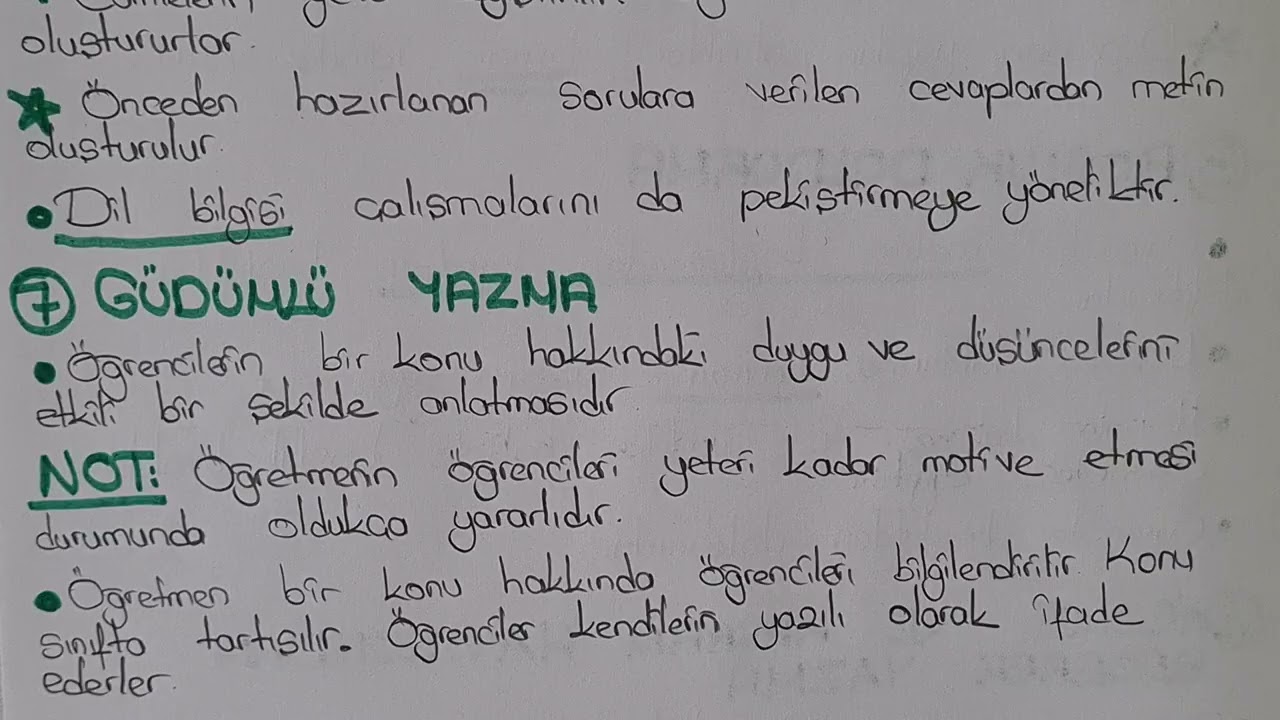 oluştururlar.
★ Önceden hazırlanan sorulara verilen cevaplardan metin
oluşturulur.
• Dil bilgisi çalışmalarını da pekiştirmeye yöneliktir.
7 GÜDÜMLÜ YAZMA
• Öğrencilerin bir konu hakkındaki duygu ve düşüncelerini
etkili bir şekilde anlatmasıdır
NOT: Öğretmenin öğrencileri yeteri kadar motive etmesi
durumunda oldukça yararlıdır.
• Öğretmen bir konu hakkında öğrencileri bilgilendirilir. Konu
sınıfta tartışılır. Öğrenciler kendilerin yazılı olarak ifade
ederler.